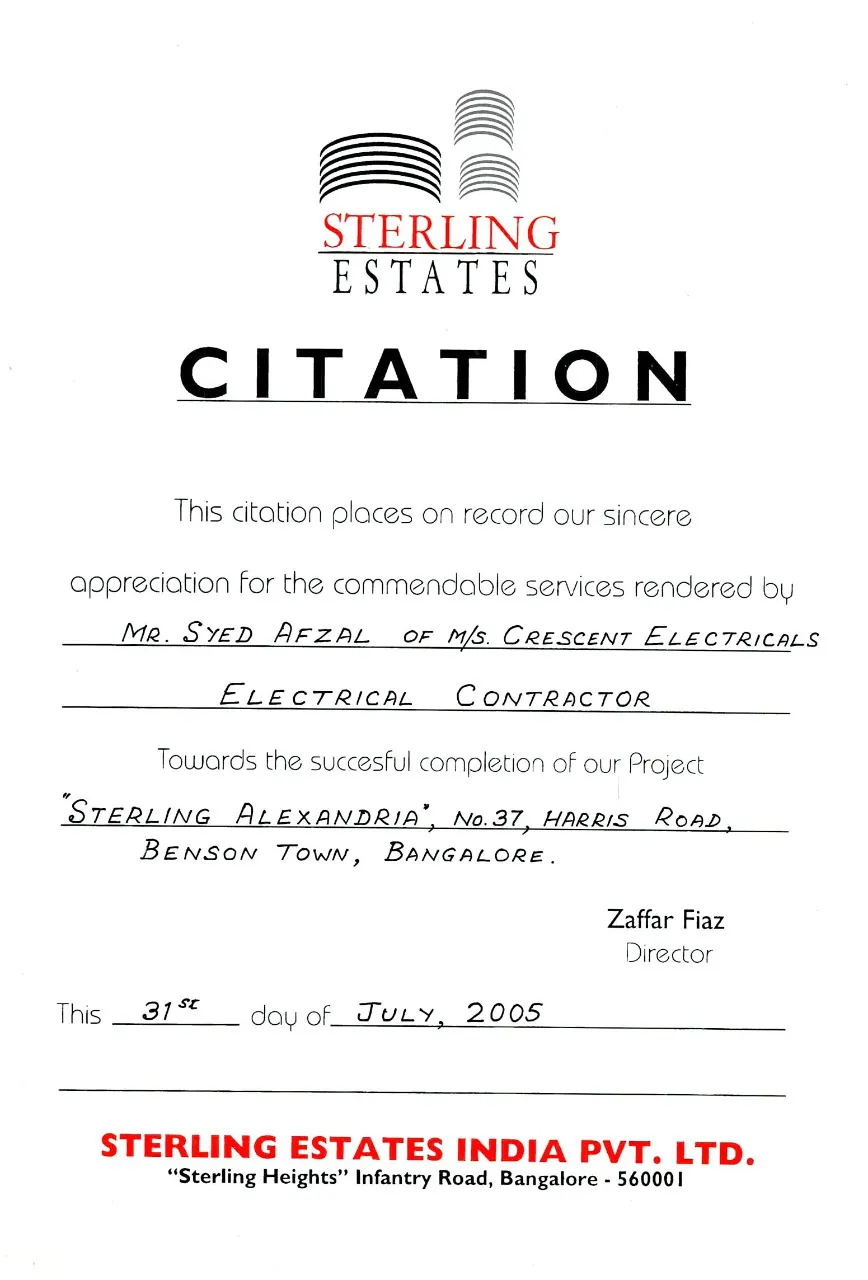 STERLING
ESTATES
CITATION
This citation places on record our sincere
appreciation for the commendable services rendered by
MR. SYED AFZAL OF M/S. CRESCENT ELECTRICALS
ELECTRICAL CONTRACTOR
Towards the succesful completion of our Project
"STERLING ALEXANDRIA", No. 37, HARRIS ROAD,
BENSON TOWN, BANGALORE.
Zaffar Fiaz
Director
This 31ST day of JULY, 2005
STERLING ESTATES INDIA PVT. LTD.
“Sterling Heights” Infantry Road, Bangalore - 560001